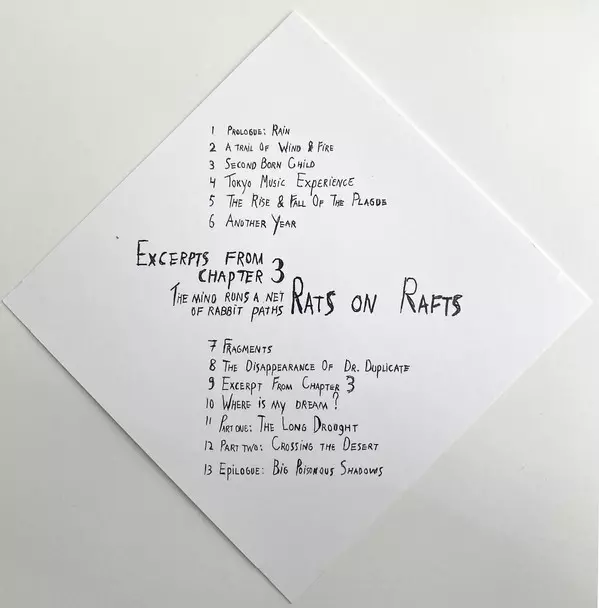 1 Prologue: Rain
2 A Trail Of Wind & Fire
3 Second Born Child
4 Tokyo Music Experience
5 The Rise & Fall Of The Plague
6 Another Year
Excerpts from
Chapter 3
The mind runs a net
of rabbit paths
Rats on Rafts
7 Fragments
8 The Disappearance Of Dr. Duplicate
9 Excerpt From Chapter 3
10 Where is my dream?
11 Part one: The Long Drought
12 Part two: Crossing the Desert
13 Epilogue: Big Poisonous Shadows